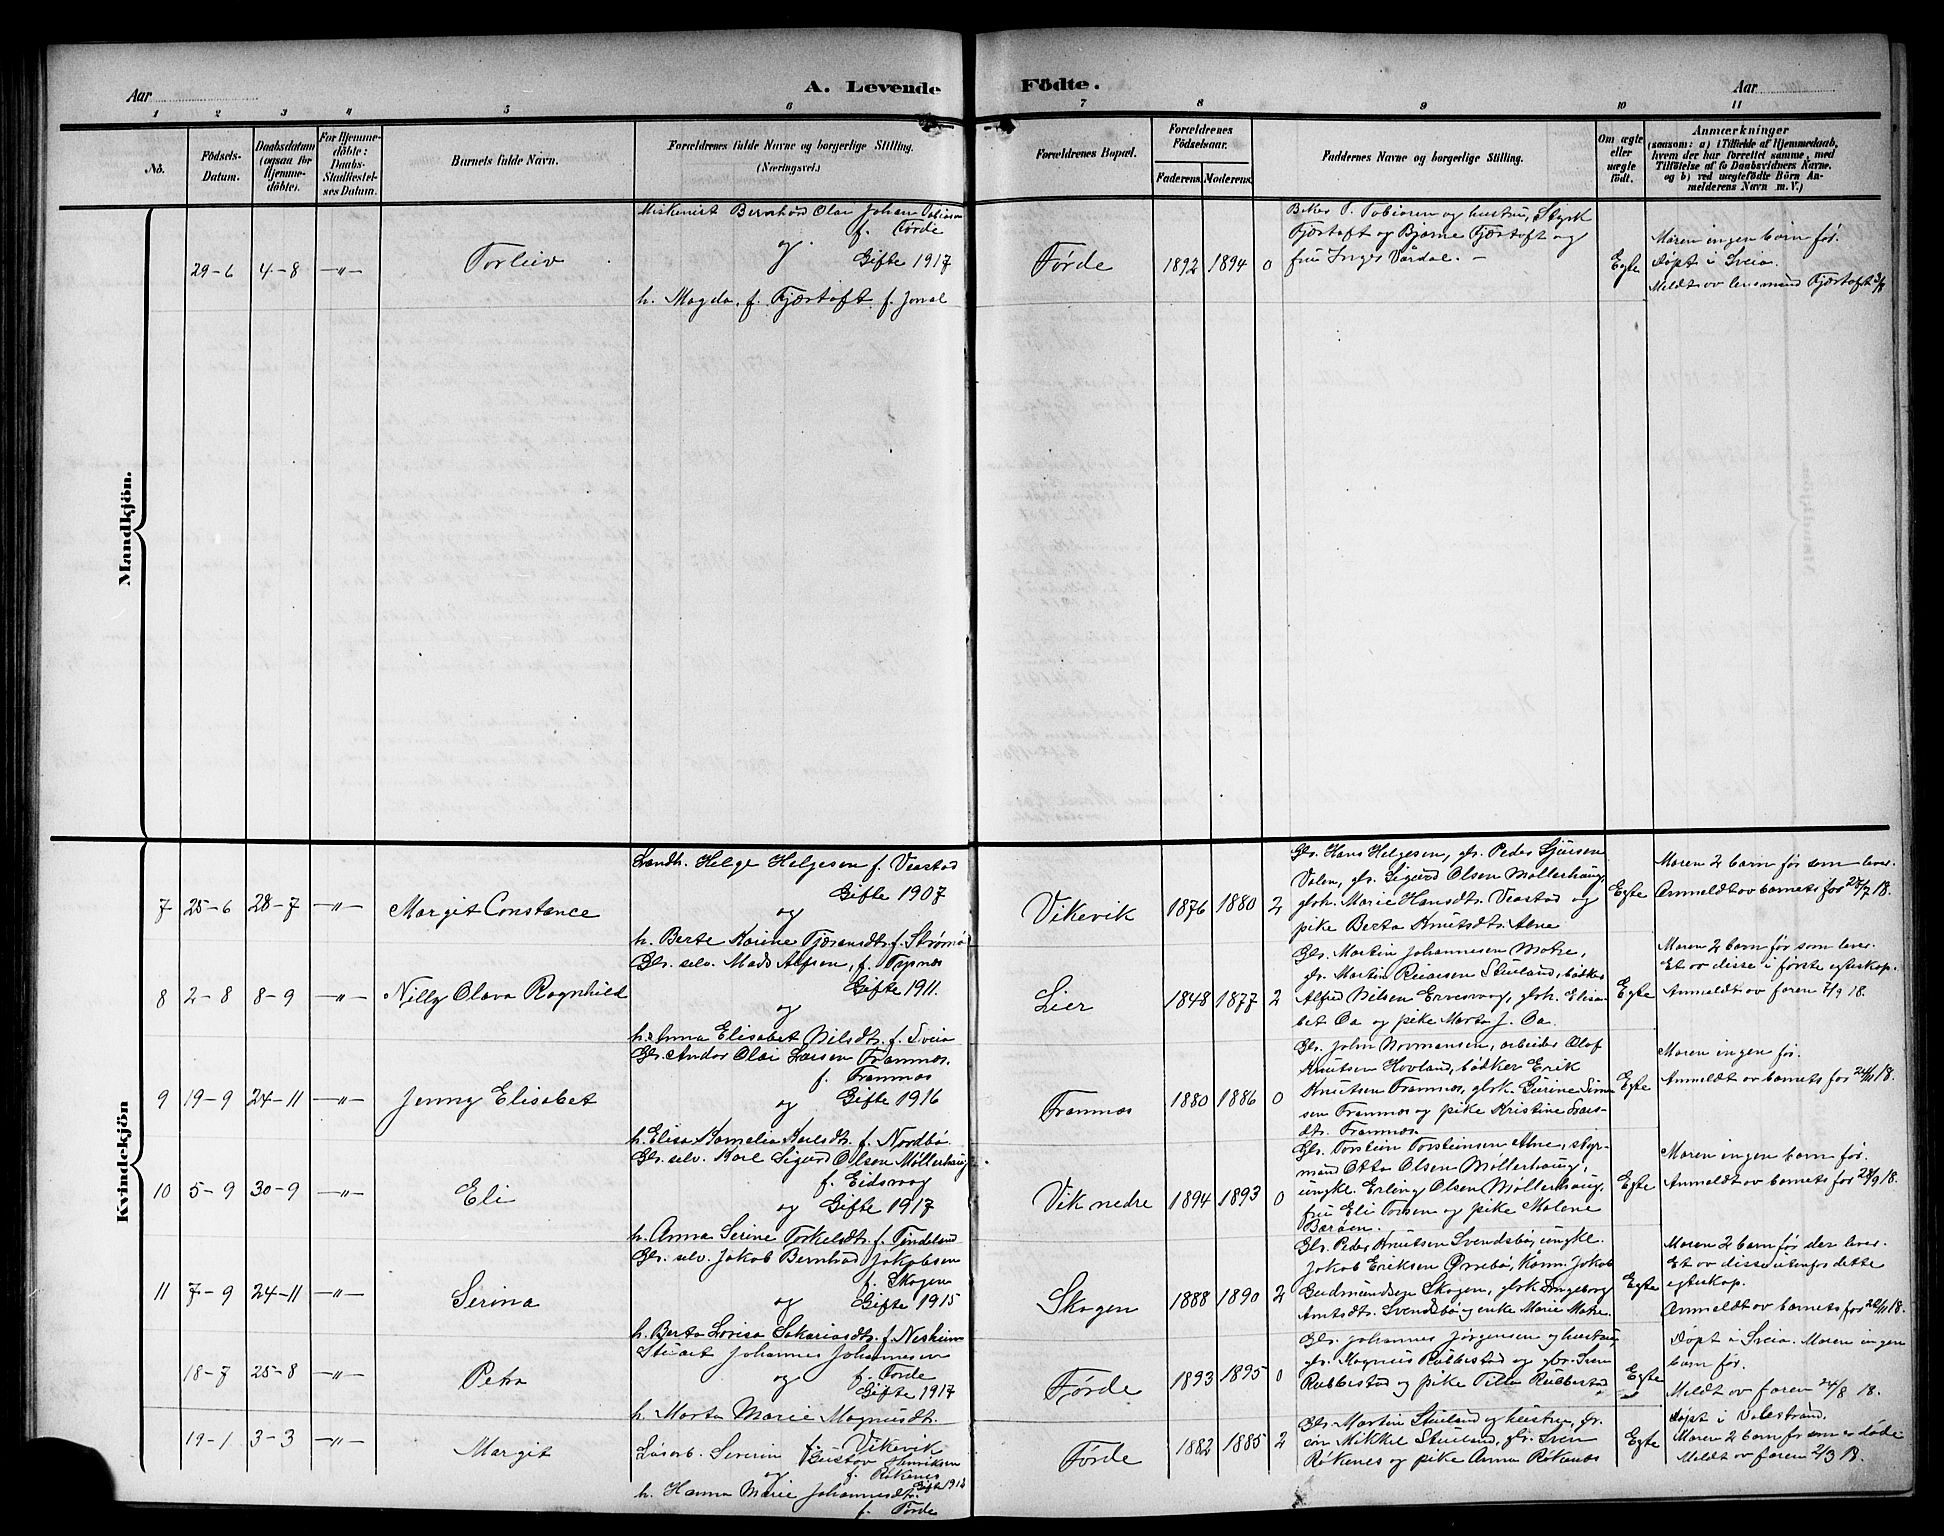 A. Levende Födte.
Aar
Aar
1 2 3 4 5 6 7 8 9 10 11
No.
Födsels-Datum.
Daabsdatum (ogsaa for Hjemme-döbte).
For Hjemme-döbte: Daabs-Stadfæstel-ses Datum.
Barnets fulde Navn.
Forældrenes fulde Navne og borgerlige Stilling.
(Næringsvei.)
Forældrenes Bopæl.
Forældrenes Födselsaar.
Faderens. Moderens.
Faddernes Navne og borgerlige Stilling.
Om ægte eller uægte födt.
Anmærkninger
(saasom: a) i Tilfælde af Hjemmedaab,
hvem der har forrettet samme, med
Tilföielse af to Daabsvidners Navne,
og b) ved uægtefödte Börn An-
melderens Navn m. V.)
Mandkjön.
29-6 4-8 -"- Torleiv
Maskinist Bernhard Olai Johan Tobiasen
f. Førde
og Gifte 1917
h. Magda, f. Fjærtoft f. Jondal
Førde 1892 1894 0
Baker T. Tobiasen og hustru, Styrk
Fjærtoft og Bjarne Fjærtoft og
fru Inga Vårdal. -
Egte
Moren ingen barn før.
Døpt i Sveio.
Meldt av lensmand Fjærtoft 3/8
Kvindekjön
7 25-6 28-7 -"- Margit Constance
Landh. Helge Helgesen f. Veastad
Gifte 1907
og
h. Berte Karine Fjæransdtr. f. Strømø
Vikevik 1876 1880 2
Gbr. Hans Helgesen, gbr. Peder Sjursen
Valen, gbr. Sigurd Olsen Møllerhaug
gbrk. Marie Hansdtr. Veastad og
pike Berta Knutsdtr. Alne
Egte
Moren 2 barn før som lever.
Anmeldt av barnets far 28/7 18.
8 2-8 8-9 -"- Nilly Olava Ragnhild
Gbr. selv. Mads Alfsen, f. Trynes
Gifte 1911.
og
h. Anna Elisabet Nilsdtr. f. Sveio
Lier 1848 1877 2
Gbr. Martin Johannesen Møkre,
gbr. Martin Reiarsen Stuland, bødker
Alfred Nilsen Ervesvag, gbrk. Elisa-
bet Oa og pike Marta J. Oa.
Egte
Moren 2 barn før som lever.
Et av disse i første egteskap.
Anmeldt av faren 7/9 18.
9 19-9 24-11 -"- Jenny Elisabet
Gbr. Andor Olai Larsen Framnes.
f. Framnes
og Gifte 1916
h. Elisa Kornelia Karlsdtr. f. Nordbø.
Framnes 1880 1886 0
Gbr. John Normansen, arbeider Olaf
Knutsen Hovland, bødker Erik
Knutsen Framnes, gbrk. Gurine Simon-
sen Framnes og pike Kristine Lars-
dtr. Framnes.
Egte
Moren ingen før.
Anmeldt av barnets far 24/11 18.
10 5-9 30-9 -"- Eli
Gbr. selv. Karl Sigurd Olsen Møllerhaug
f. Eidsvag
og Gifte 1917
h. Anna Serine Torkelsdtr. f. Tindeland
Vik nedre 1894 1893 0
Gbr. Torstein Torsteinsen Alne, styr-
mand Otto Olsen Møllerhaug,
ungk. Erling Olsen Møllerhaug,
fru Eli Torsen og pike Malene
Barøen.
Egte
Moren ingen barn før.
Anmeldt av barnets far 28/9 18.
11 7-9 24-11 -"- Serina
Gbr. selv Jakob Bernhard Jakobsen
f. Skogen
og Gifte 1915
h. Berta Lovisa Sakariasdtr. f. Nesheim
Skogen 1888 1890 2
Gbr. Peder Knutsen Svendsbø, ungk.
Jakob Eriksen Ørrebø, Kaarm. Jakob
Gudmundsen Skogen, gbrk. Ingeborg
Amundsdtr. Svendsbø og enke Marie Møkre.
Egte
Moren 2 barn før der lever.
Et av disse utenfor dette
egteskap.
Anmeldt av barnets far 22/11 18.
18-7 25-8 -"- Petra
Stuart Johannes Johannesen
og f. Førde
Gifte 1917
h. Marta Marie Magnusdtr.
f. Vikevik
Førde 1893 1895 0
Gbr. Johannes Jørgensen og hustru,
gbr. Magnus Rubbestad og gbr. Sven
Rubbestad og pike Tilla Rubbestad
Egte
Døpt i Sveio. Moren ingen
barn før.
Meldt av faren 24/8 18.
19-1 3-3 -"- Margit
Løsarb. Severin Gustav Henriksen
og f. Røkenes
Gifte 1912
h. Hanna Marie Johannesdtr.
f. Førde
Førde 1882 1885 2
Gbr. Martin Stuland og hustru, gbr.
søn Mikkel Stuland, gbr. Sven
Røkenes og pike Anna Røkenes
Egte
Døpt i Valestrand.
Moren 2 barn før som er døde
Meldt av faren 2/3 18.